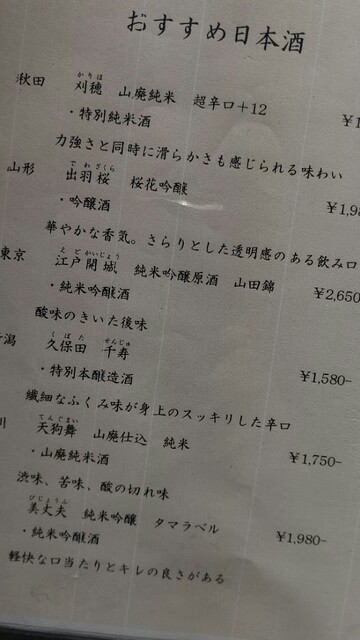 おすすめ日本酒
かりほ
秋田 刈穂 山廃純米 超辛口+12
・特別純米酒 ¥1
力強さと同時に滑らかさも感じられる味わい
でわざくら
山形 出羽桜 桜花吟醸
・吟醸酒 ¥1,98
華やかな香気。さらりとした透明感のある飲み口
えどかいじょう
東京 江戸開城 純米吟醸原酒 山田錦
・純米吟醸酒 ¥2,650
酸味のきいた後味
くぼた せんじゅ
潟 久保田 千寿
・特別本醸造酒 ¥1,580-
繊細なふくみ味が身上のスッキリした辛口
てんぐまい
川 天狗舞 山廃仕込 純米
・山廃純米酒 ¥1,750-
渋味、苦味、酸の切れ味
びじょうふ
美丈夫 純米吟醸 タマラベル
・純米吟醸酒 ¥1,980-
軽快な口当たりとキレの良さがある